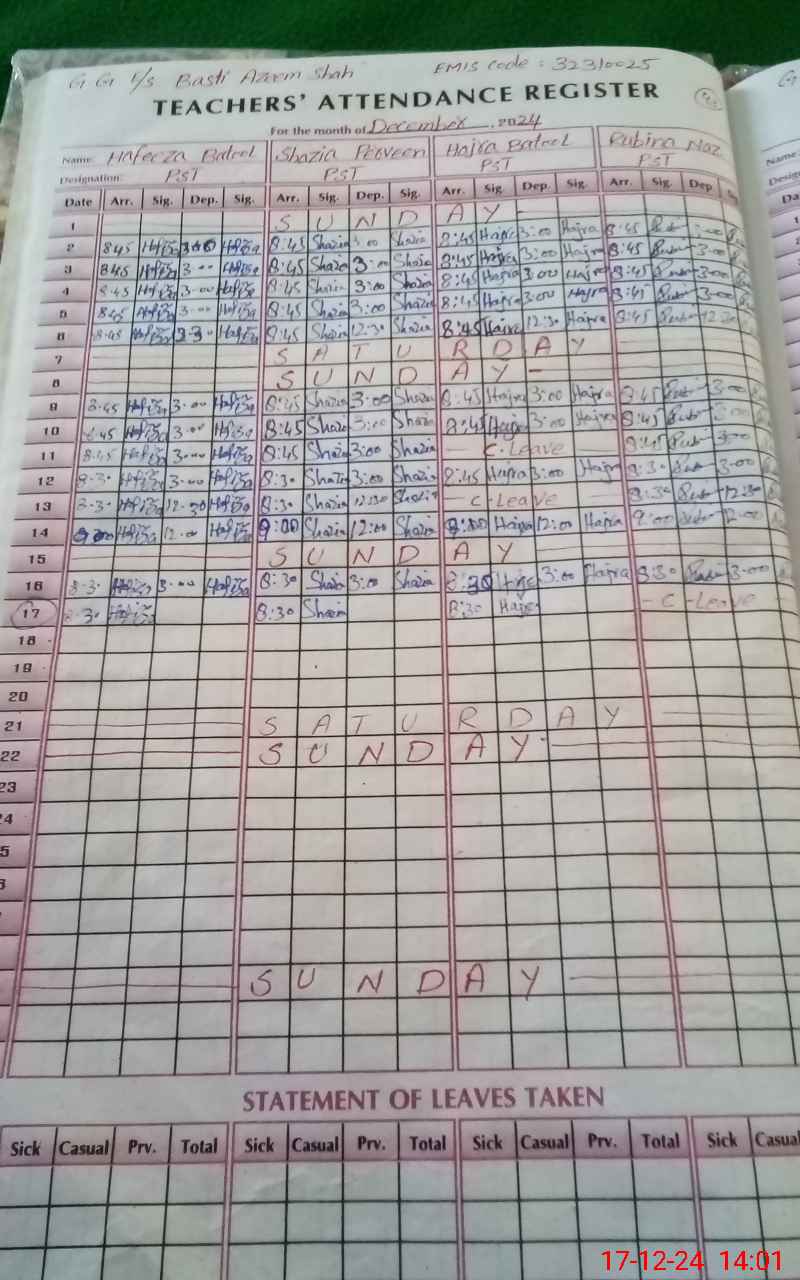 G G E/S Basti Azeem Shah EMIS Code : 32310025
TEACHERS' ATTENDANCE REGISTER
For the month of December, 2024
Name: Hafeeza Batool Shazia Perveen Hajra Batool Rubina Naz
Designation: PST PST PST PST
Date Arr. Sig. Dep. Sig. Arr. Sig. Dep. Sig. Arr. Sig. Dep. Sig. Arr. Sig. Dep
1 S U N D A Y
2 8:45 Hafiza 3:00 Hafiza 8:45 Shazia 3:00 Shazia 8:45 Hajra 3:00 Hajra 8:45
3 8:45 Hafiza 3:00 Hafiza 8:45 Shazia 3:00 Shazia 8:45 Hajra 3:00 Hajra 8:45 3:00
4 8:45 Hafiza 3:00 Hafiza 8:45 Shazia 3:00 Shazia 8:45 Hajra 3:00 Hajra 8:45 3:00
5 8:45 Hafiza 3:00 Hafiza 8:45 Shazia 3:00 Shazia 8:45 Hajra 3:00 Hajra 8:45 3:00
6 8:45 Hafiza Hafiza 8:45 Shazia 12:30 Shazia 8:45 Hajra 12:30 Hajra 8:45
7 S A T U R D A Y
8 S U N D A Y
9 8:45 Hafiza 3:00 Hafiza 8:45 Shazia 3:00 Shazia 8:45 Hajra 3:00 Hajra 8:45 3:00
10 8:45 Hafiza 3:00 Hafiza 8:45 Shazia 3:00 Shazia 8:45 Hajra 3:00 Hajra 8:45
11 8:45 Hafiza 3:00 Hafiza 8:45 Shazia 3:00 Shazia C. Leave 8:45 3:00
12 8:3. Hafiza 3:00 Hafiza 8:30 Shazia 3:00 Shazia 8:45 Hajra 3:00 Hajra 8:3. 3:00
13 8:3. Hafiza 12:30 Hafiza 8:30 Shazia 12:30 Shazia - C. Leave 8:30 12:30
14 Hafiza 12:00 Hafiza 9:00 Shazia 12:00 Shazia 9:00 Hajra 12:00 Hajra 9:00 12:00
15 S U N D A Y
16 8:3. Hafiza 3:00 Hafiza 8:30 Shazia 3:00 Shazia 8:30 Hajra 3:00 Hajra 8:30 3:00
17 8:3. Hafiza 8:30 Shazia 8:30 Hajra - C - Leave
18
19
20
21 S A T U R D A Y
22 S U N D A Y
23
S U N D A Y
STATEMENT OF LEAVES TAKEN
Sick Casual Prv. Total Sick Casual Prv. Total Sick Casual Prv. Total Sick Casual
17-12-24 14:01